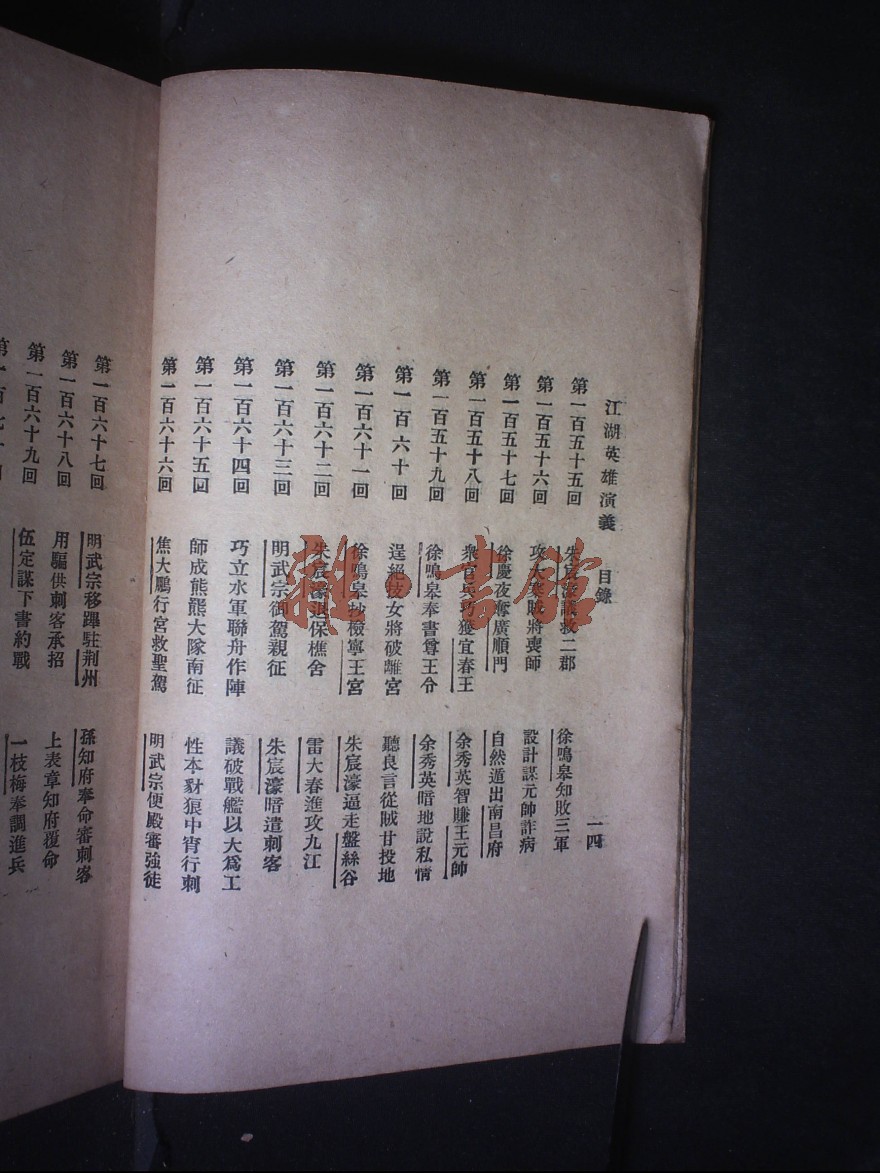 江湖英雄演義 目錄 一四
第一百五十五回 朱宸濠議救二郡 徐鳴皋知敗三軍
第一百五十六回 攻大寨賊將喪師 設計謀元帥詐病
第一百五十七回 徐慶夜奪廣順門 自然遁出南昌府
第一百五十八回 衆官兵巧獲宜春王 余秀英智賺王元帥
第一百五十九回 徐鳴皋奉書尊王令 余秀英暗地說私情
第一百六十回 逞絕技女將破離宮 聽良言從賊甘投地
第一百六十一回 徐鳴皋抄檢寧王宮 朱宸濠逼走盤絲谷
第一百六十二回 朱宸濠退保樵舍 雷大春進攻九江
第一百六十三回 明武宗御駕親征 朱宸濠暗遣刺客
第一百六十四回 巧立水軍聯舟作陣 議破戰艦以大爲工
第一百六十五回 師成熊羆大隊南征 性本豺狼中宵行刺
第一百六十六回 焦大鵬行宮救聖駕 明武宗便殿審強徒
第一百六十七回 明武宗移蹕駐荆州 孫知府奉命審刺客
第一百六十八回 用騙供刺客承招 上表章知府覆命
第一百六十九回 伍定謀下書約戰 一枝梅奉調進兵
雜·書館